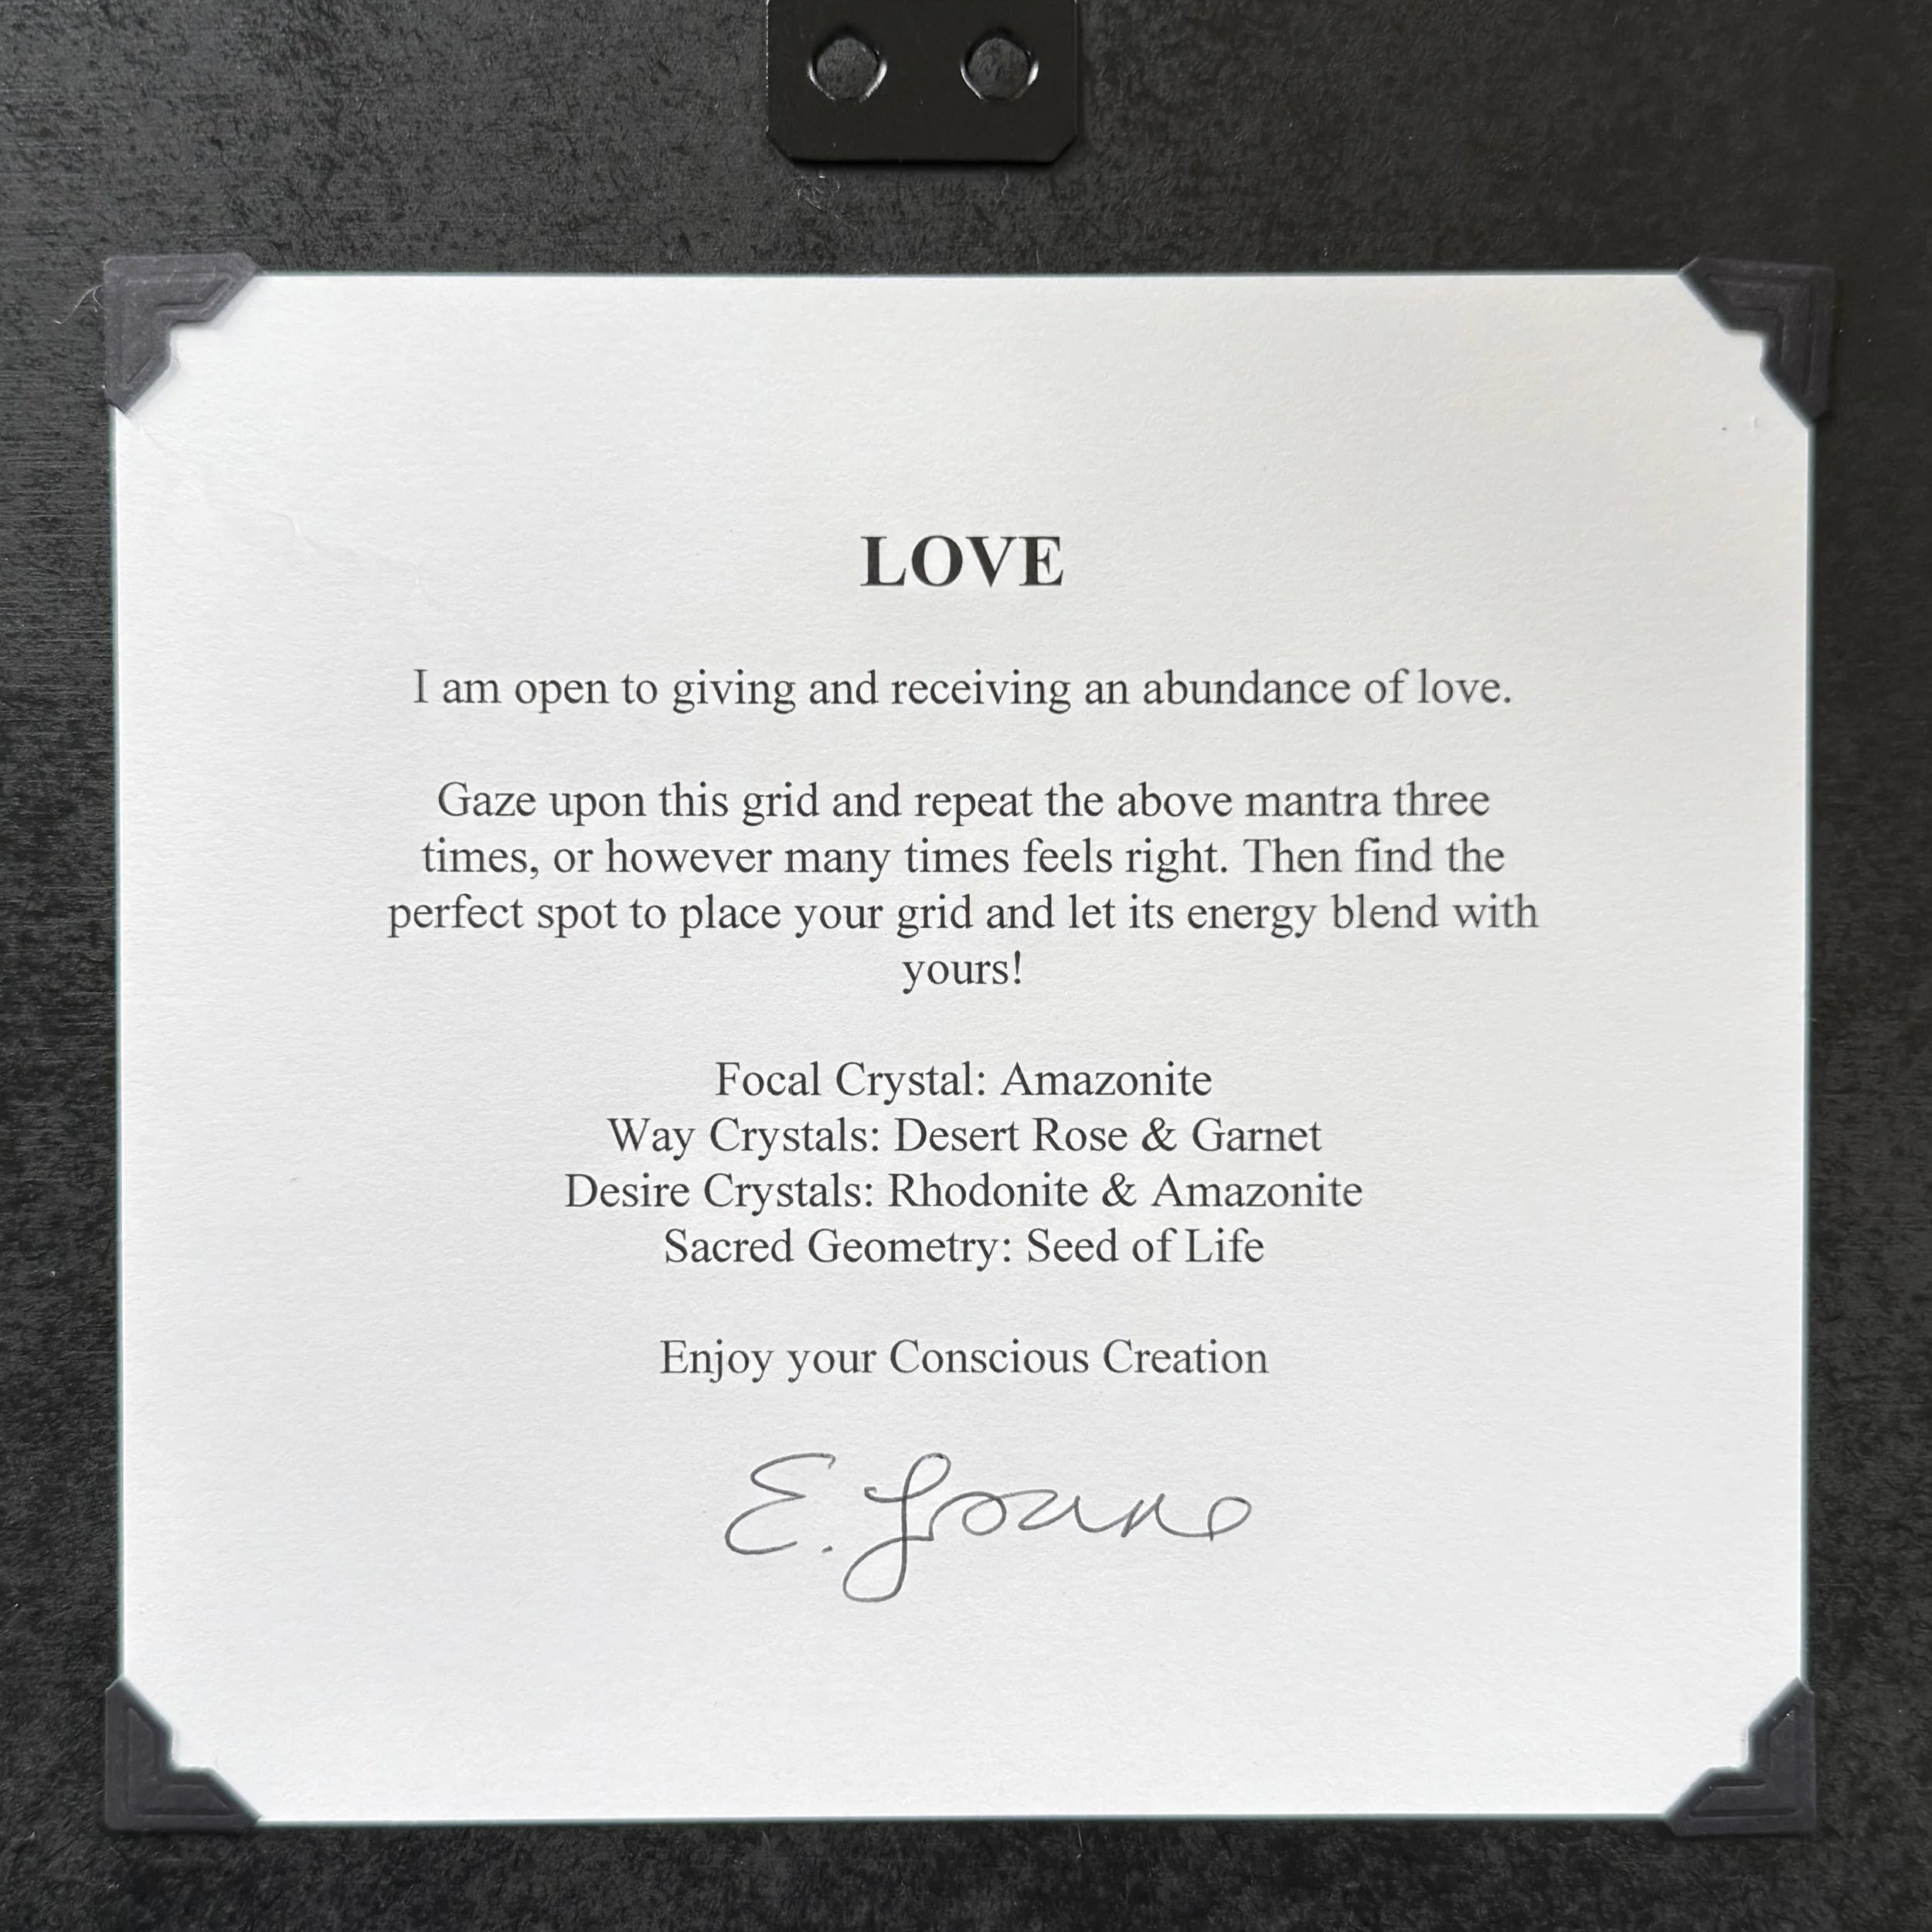 LOVE
I am open to giving and receiving an abundance of love.
Gaze upon this grid and repeat the above mantra three
times, or however many times feels right. Then find the
perfect spot to place your grid and let its energy blend with
yours!
Focal Crystal: Amazonite
Way Crystals: Desert Rose & Garnet
Desire Crystals: Rhodonite & Amazonite
Sacred Geometry: Seed of Life
Enjoy your Conscious Creation
E.